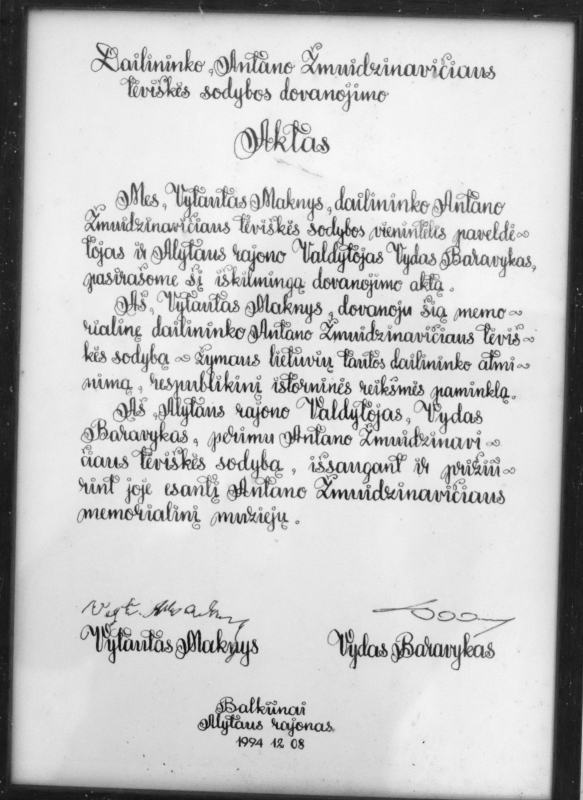 Dailininko Antano Žmuidzinavičiaus
tėviškės sodybos dovanojimo
Aktas
Mes, Vytautas Maknys, dailininko Antano
Žmuidzinavičiaus tėviškės sodybos vienintelis paveldė~
tojas ir Alytaus rajono Valdytojas Vydas Baravykas,
pasirašome šį iškilmingą dovanojimo aktą.
Aš, Vytautas Maknys, dovanoju šią memo~
rialinę dailininko Antano Žmuidzinavičiaus tėviš~
kės sodybą ~ žymaus lietuvių tautos dailininko atmi~
nimą, respublikinį istorinės reikšmės paminklą.
Aš, Alytaus rajono Valdytojas, Vydas
Baravykas, perimu Antano Žmuidzinavi~
čiaus tėviškės sodybą, išsaugant ir prižiū~
rint joje esantį Antano Žmuidzinavičiaus
memorialinį muziejų.
Vytautas Maknys Vydas Baravykas
Balkūnai
Alytaus rajonas
1994 12 08